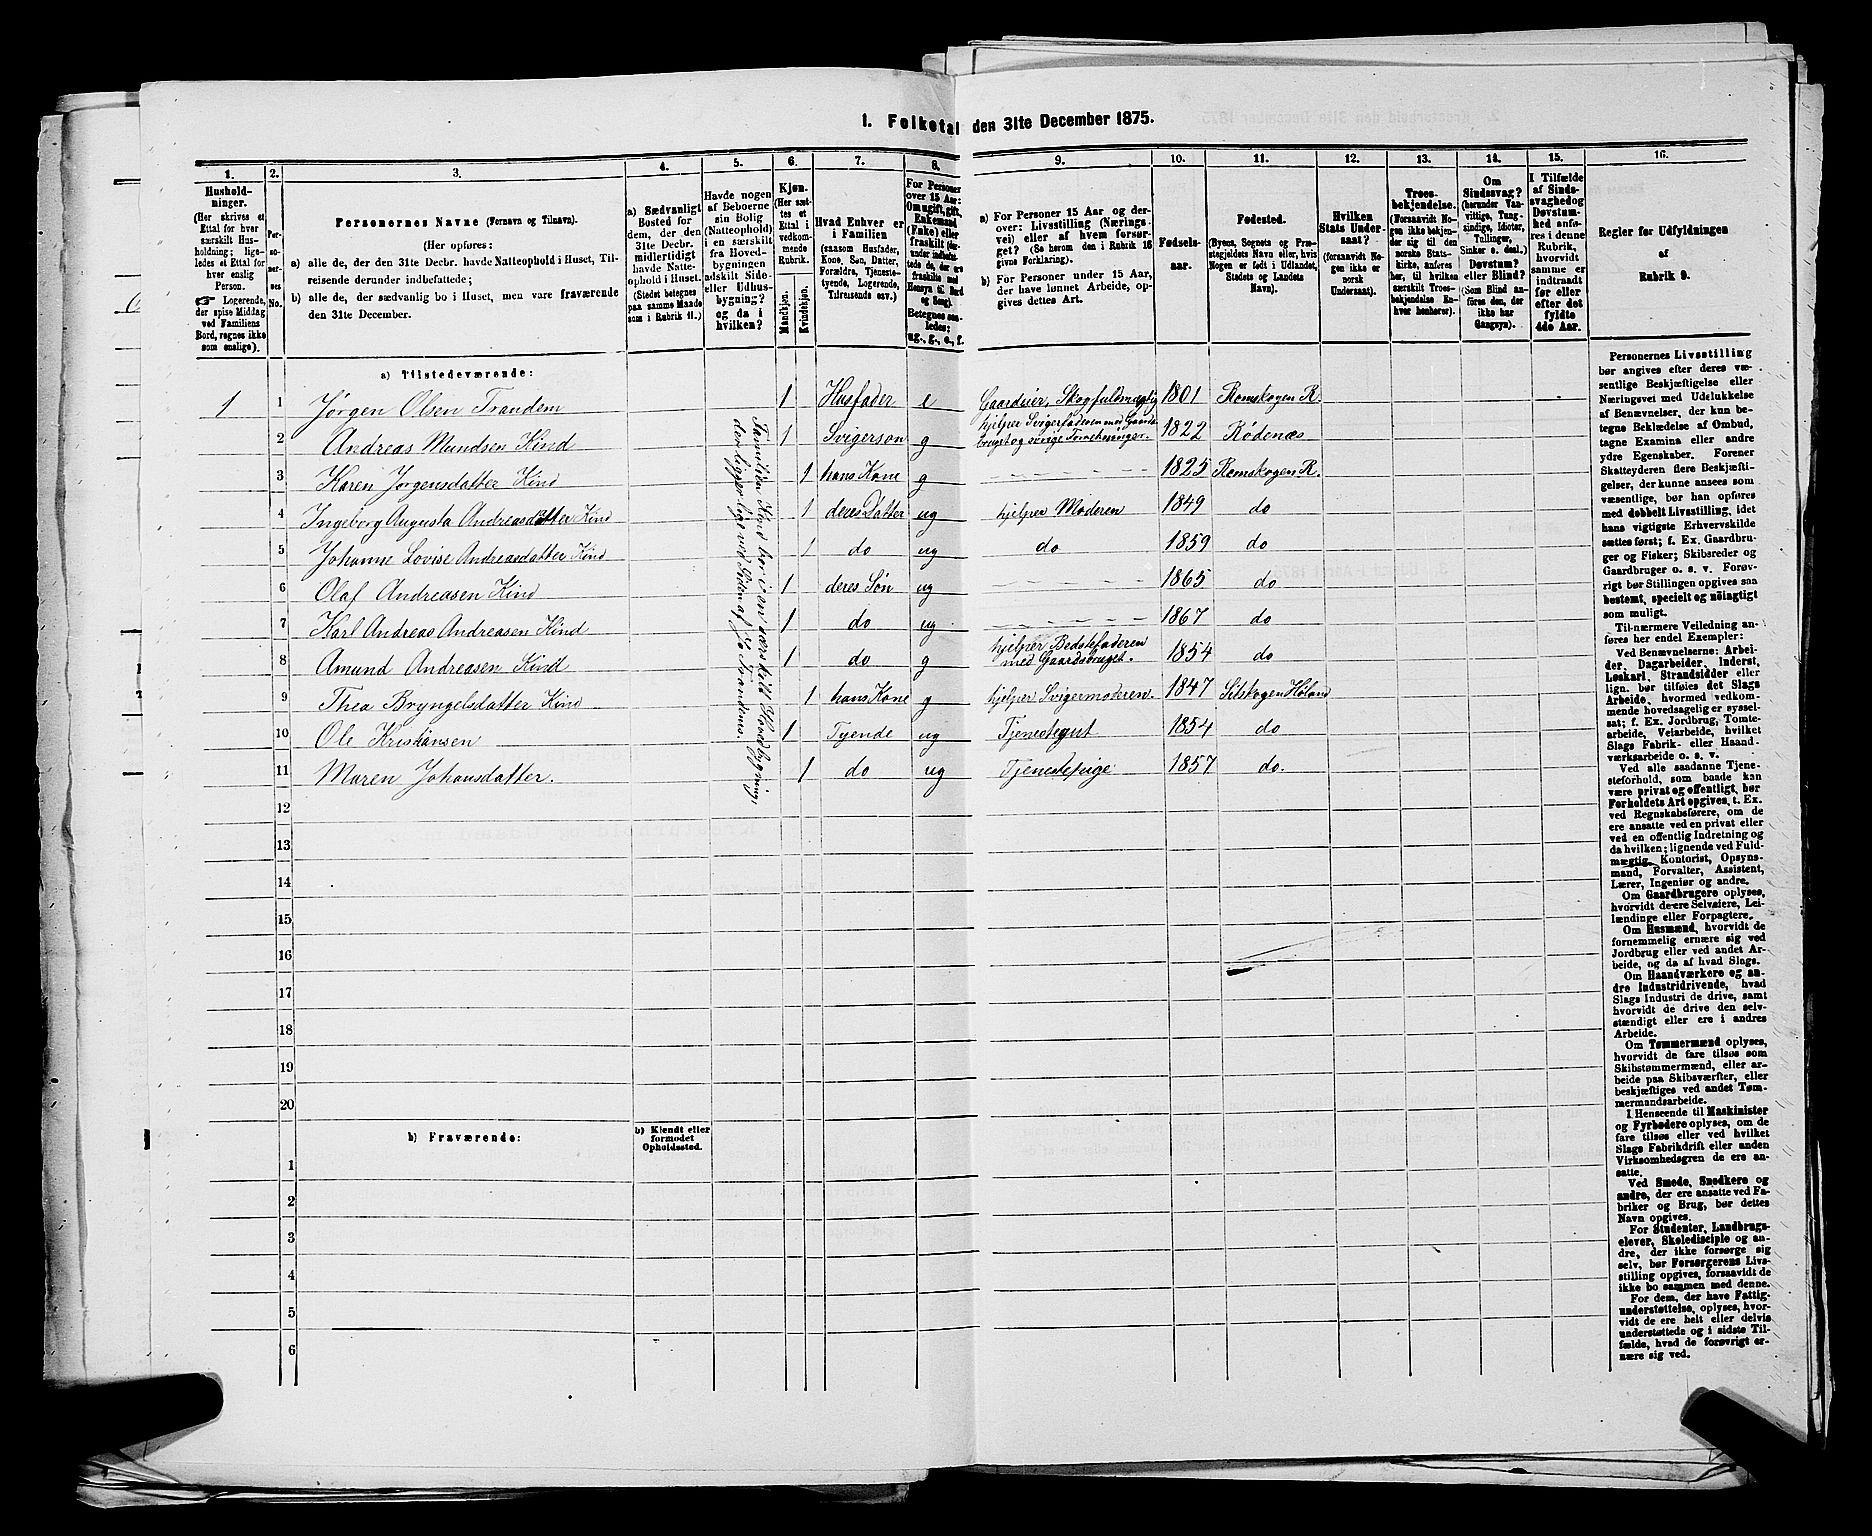 1. Folketal den 31te December 1875.
1.
2.
3.
4.
5.
6.
7.
8.
9.
10.
11.
12.
13.
14.
15.
16.
Hushold-
ninger.
(Her skrives et
Ettal for hver
særskilt Hus-
holdning; lige-
ledes et Ettal for
hver enslig
Person.
Logerende,
der spise Middag
ved Familiens
Bord, regnes ikke
som enslige).
Per-
so-
ner-
nes
No.
Personernes Navne (Fornavn og Tilnavn).
(Her opføres:
a) alle de, der den 31te Decbr. havde Natteophold i Huset, Til-
reisende derunder indbefattede;
b) alle de, der sædvanlig bo i Huset, men vare fraværende
den 31te December.
a) Sædvanligt
Bosted for
dem, der den
31te Decbr.
midlertidigt
havde Natte-
ophold i Huset.
(Stedet betegnes
paa samme Maade
som i Rubrik 11.)
Havde nogen
af Beboerne
sin Bolig
(Natteophold)
i en særskilt
fra Hoved-
bygningen
adskilt Side-
eller Udhus-
bygning?
og da i
hvilken?
Kjøn.
(Her sæt-
tes et
Ettal i
vedkom-
mende
Rubrik.
Mandkjøn.
Kvindekjøn.
Hvad Enhver er
i Familien
(saasom Husfader,
Kone, Søn, Datter,
Forældre, Tjeneste-
tyende, Logerende,
Tilreisende osv.)
For Personer
over 15 Aar:
Om ugift, gift,
Enkemand
(Enke) eller
fraskilt
Betegnes saa-
ledes:
ug., g., e., f.
a) For Personer 15 Aar og der-
over: Livsstilling (Nærings
vei) eller af hvem forsør-
get? (Se herom den i Rubrik 16
givne Forklaring).
b) For Personer under 15 Aar,
der have lønnet Arbeide, op-
gives dettes Art.
Fødsels-
aar.
Fødested.
(Byens, Sognets og Præ-
stegjeldets Navn eller, hvis
Nogen er født i Udlandet,
Stedets og Landets
Navn).
Hvilken
Stats Under-
saat?
(foraavidt No-
gen ikke er
norsk
Undersaat).
Troes-
bekjendelse.
(Forsaavidt No-
gen ikke bekjen-
der sig til den
norske Stats-
kirke, anføres
her, til hvilken
særskilt Troes-
bekjendelse En-
hver henhører).
Om
Sindssvag?
(herunder Van-
vittige, Tung-
sindige, Idioter,
Tullinger,
Sinker o. desl.)
Døvstum?
eller Blind?
(Som Blind an-
føres den, der
ikke har
Gangsyn).
I Tilfælde
af Sinds-
svaghed og
Døvstum-
hed anfø-
res i denne
Rubrik,
hvorvidt
samme er
indtraadt
før eller
efter det
fyldte
4de Aar.
Regler for Udfyldningen
af
Rubrik 9.
a) Tilstedeværende:
1 1 Jørgen Olsen Trandem 1 Husfader e Gaardeier, Skogfuldmægtig 1801 Romskogen R.
2 Andreas Mundsen Kind 1 Svigersøn g hjelper Svigerfaderen med Gaards-
brug og øvrige Forretninger. 1822 Rødenæs
3 Karen Jørgensdatter Kind 1 hans Kone g 1825 Romskogen R.
4 Ingeborg Augusta Andreasdatter Kind 1 deres Datter ug hjelper Moderen 1849 do
5 Johanne Lovise Andreasdatter Kind 1 do ug do 1859 do
6 Olaf Andreasen Kind 1 deres Søn ug 1865 do
7 Karl Andreas Andreasen Kind 1 do ug 1867 do
8 Amund Andreasen Kind 1 do g hjelper Bedstefaderen
med Gaardsbruget. 1854 do
9 Thea Bryngelsdatter Kind 1 hans Kone g hjelper Svigermoderen. 1847 Setskogen Høland
10 Ole Kristiansen 1 Tyende ug Tjenestegut 1854 do
11 Maren Johansdatter. 1 do ug Tjenestepige 1857 do.
Familien Kind bor i en særskilt Hovedbygning,
der ligger lige ved Siden af J. O. Trandems.
12
13
14
15
16
17
18
19
20
b) Fraværende:
b) Kjendt eller
formodet
Opholdssted.
1
2
3
4
5
6
Personernes Livsstilling
bør angives efter deres væ-
sentlige Beskjæftigelse eller
Næringsvei med Udelukkelse
af Benævnelser, der kun be-
tegne Beklædelse af Ombud,
tagne Examina eller andre
ydre Egenskaber. Forener
Skatteyderen flere Beskjæfti-
gelser, der kunne ansees som
væsentlige, bør han opføres
med dobbelt Livsstilling, idet
hans vigtigste Erhvervskilde
sættes først; f. Ex. Gaardbru-
ger og Fisker; Skibsreder og
Gaardbruger o. s. v. Forøv-
rigt bør Stillingen opgives saa
bestemt, specielt og nøiagtigt
som muligt.
Til nærmere Veiledning an-
føres her endel Exempler:
Ved Benævnelserne: Arbei-
der, Dagarbeider, Inderst,
Løskarl, Strandsidder eller
lign. bør tilføies det Slags
Arbeide, hvormed vedkom-
mende hovedsagelig er syssel-
sat; f. Ex. Jordbrug, Tomte-
arbeide, Veiarbeide, hvilket
Slags Fabrik- eller Haand-
værksarbeide o. s. v.
Ved alle saadanne Tjene-
steforhold, som baade kan
være privat og offentligt, bør
Forholdets Art opgives, t. Ex.
ved Regnskabsførere, om de
ere ansatte ved en privat eller
ved en offentlig Indretning og
da hvilken; lignende ved Fuld-
mægtig, Kontorist, Opsyns-
mand, Forvalter, Assistent,
Lærer, Ingeniør og andre.
Om Gaardbrugere oplyses,
hvorvidt de ere Selveiere, Lei-
lændinge eller Forpagtere.
Om Husmænd, hvorvidt de
fornemmelig ernære sig ved
Jordbrug eller ved andet Ar-
beide, og da af hvad Slags.
Om Haandværkere og an-
dre Industridrivende, hvad
Slags Industri de drive, samt
hvorvidt de drive den selv-
stændigt eller ere i andres
Arbeide.
Om Tømmermænd oplyses,
hvorvidt de fare tilsøs som
Skibstømmermænd, eller ar-
beide paa Skibsværfter, eller
beskjæftiges ved andet Tøm-
mermandsarbeide.
I Henseende til Maskinister
og Fyrbødere oplyses, om de
fare tilsøs eller ved hvilket
Slags Fabrikdrift eller anden
Virksomhedsgren de ere an-
satte.
Ved Smede, Snedkere og
andre, der ere ansatte ved Fa-
briker og Brug, bør dettes
Navn opgives.
For Studenter, Landbrugs-
elever, Skoledisciple og an-
dre, der ikke forsørge sig
selv, bør Forsørgerens Livs-
stilling opgives, forsaavidt de
ikke bo sammen med denne.
For dem, der have Fattig-
understøttelse, oplyses, hvor-
vidt de ere helt eller delvis
understøttede og i sidste Til-
fælde, hvad de forøvrigt er-
nære sig ved.